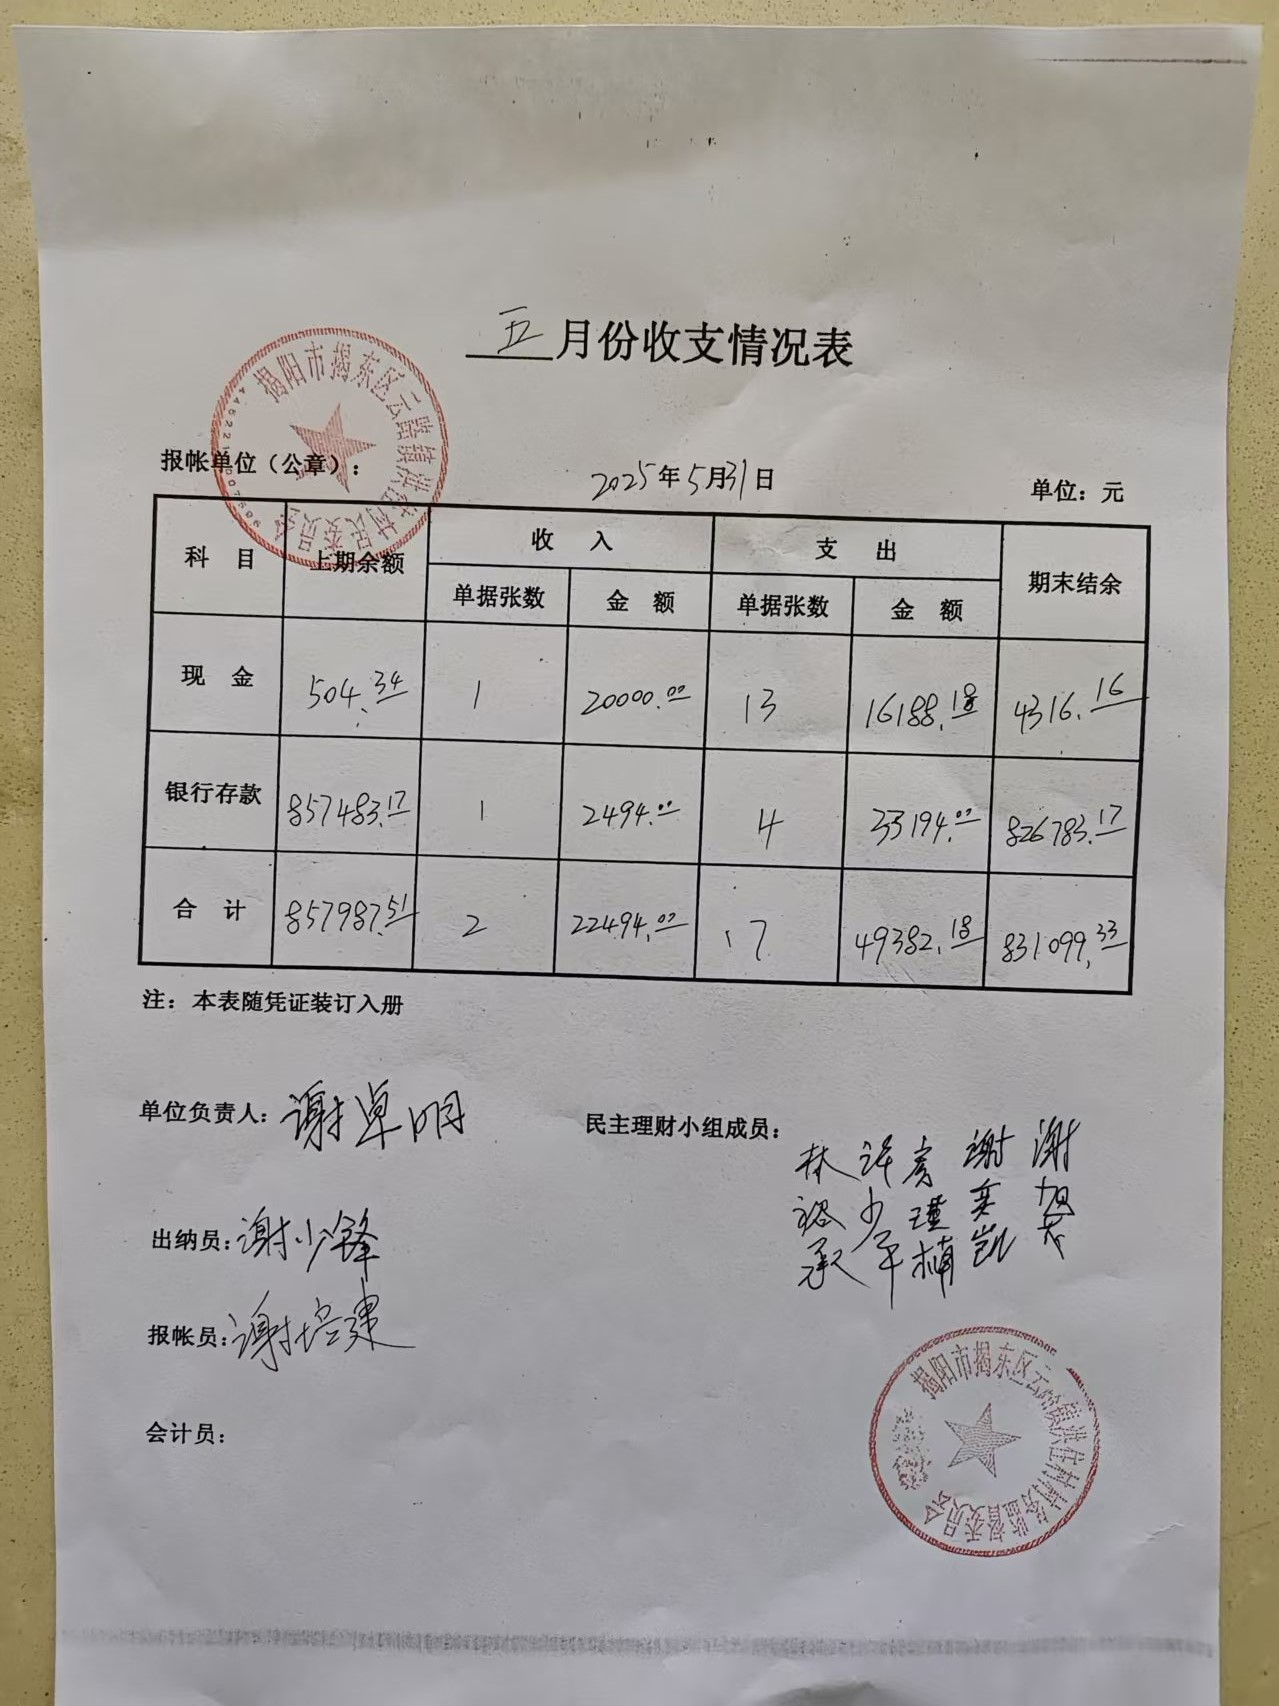 五月份收支情况表
揭阳市揭东区云路镇洪住村民委员会
报帐单位（公章）： 2025年5月31日 单位：元
科 目 上期余额 收 入 支 出 期末结余
单据张数 金 额 单据张数 金 额
现 金 504.34 1 20000.00 13 16188.18 4316.16
银行存款 857483.17 1 2494.00 4 33194.00 826783.17
合 计 857987.51 2 22494.00 17 49382.18 831099.33
注：本表随凭证装订入册
单位负责人：谢卓明 民主理财小组成员：
林裕承 许少平 谢奕凯 谢旭
出纳员：谢少锋
报帐员：谢培
会计员：
揭阳市揭东区云路镇洪住村村务监督委员会